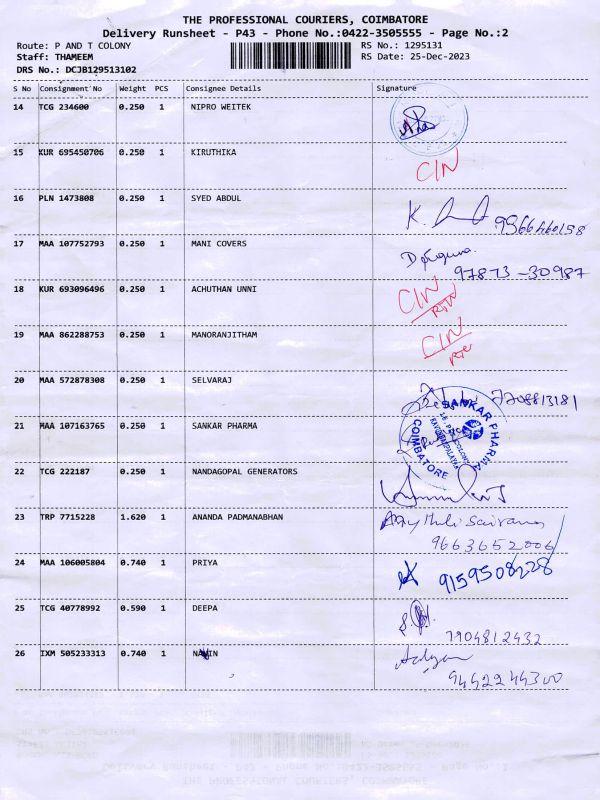 THE PROFESSIONAL COURIERS, COIMBATORE
Delivery Runsheet - P43 - Phone No.:0422-3505555 - Page No.:2
Route: P AND T COLONY RS No.: 1295131
Staff: THAMEEM RS Date: 25-Dec-2023
DRS No.: DCJB129513102
S No Consignment No Weight PCS Consignee Details Signature
14 TCG 234600 0.250 1 NIPRO WEITEK
15 KUR 695450706 0.250 1 KIRUTHIKA CIN
16 PLN 1473808 0.250 1 SYED ABDUL K.
17 MAA 107752793 0.250 1 MANI COVERS
97873-30987
18 KUR 693096496 0.250 1 ACHUTHAN UNNI CIN
RTN
19 MAA 862288753 0.250 1 MANORANJITHAM CIN
20 MAA 572878308 0.250 1 SELVARAJ 7708813181
21 MAA 107163765 0.250 1 SANKAR PHARMA SANKAR PHARMA
COIMBATORE
22 TCG 222187 0.250 1 NANDAGOPAL GENERATORS
23 TRP 7715228 1.620 1 ANANDA PADMANABHAN
9663652006
24 MAA 106005804 0.740 1 PRIYA 9159508228
25 TCG 40778992 0.590 1 DEEPA
7904812432
26 IXM 505233313 0.740 1 NAVIN
9442244300